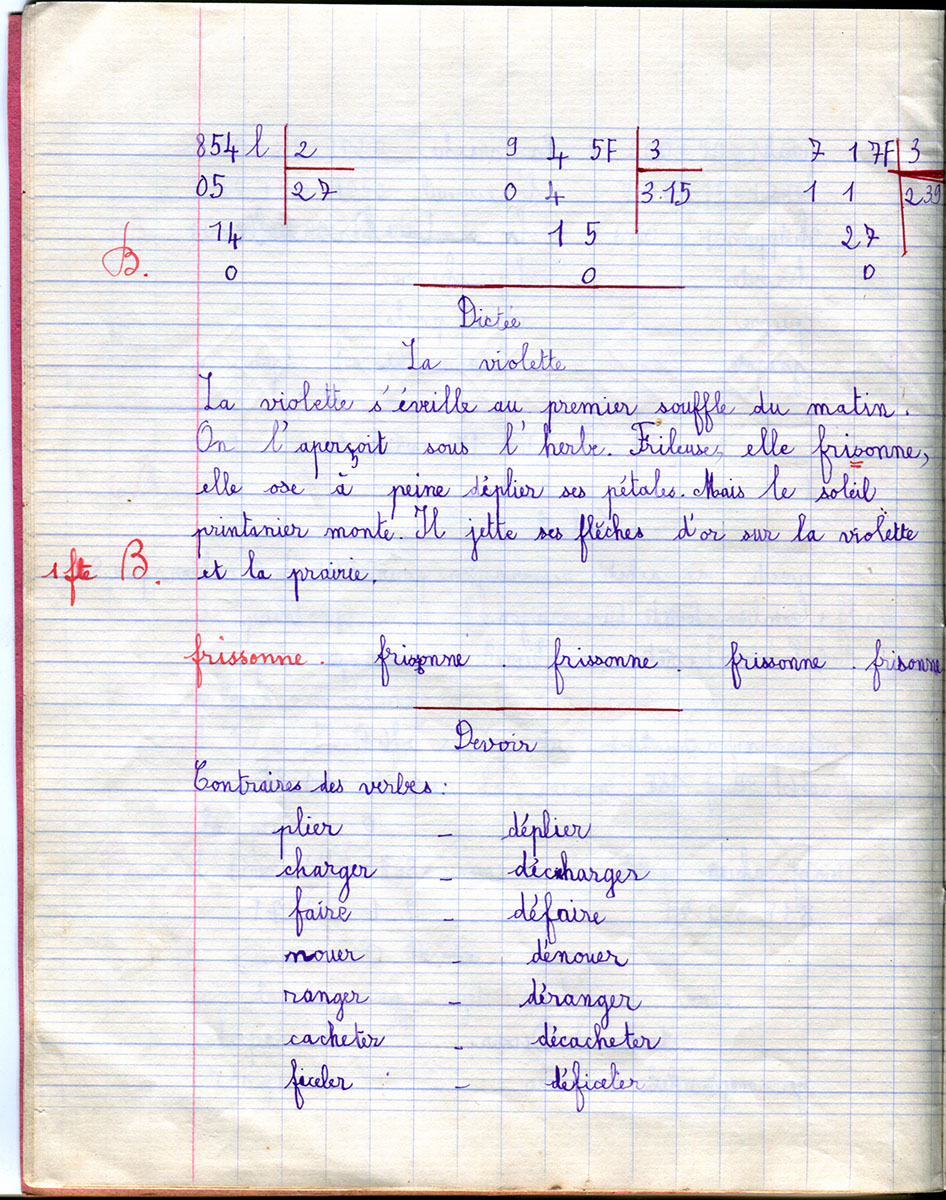 854 l 2 9 4 5F 3 7 1 7F 3
05 27 0 4 3.15 1 1 2.39
14 1 5 2 7
B. 0 0 0
Dictée
La violette
La violette s'éveille au premier souffle du matin.
On l'aperçoit sous l'herbe. Frileuse, elle frisonne,
elle ose à peine déplier ses pétales. Mais le soleil
printanier monte. Il jette ses flèches d'or sur la violette
1 fte B. et la prairie.
frissonne. frissonne. frissonne. frissonne. frisonne
Devoir
Contraires des verbes :
plier - déplier
charger - décharger
faire - défaire
nouer - dénouer
ranger - déranger
cacheter - décacheter
ficeler - déficeler